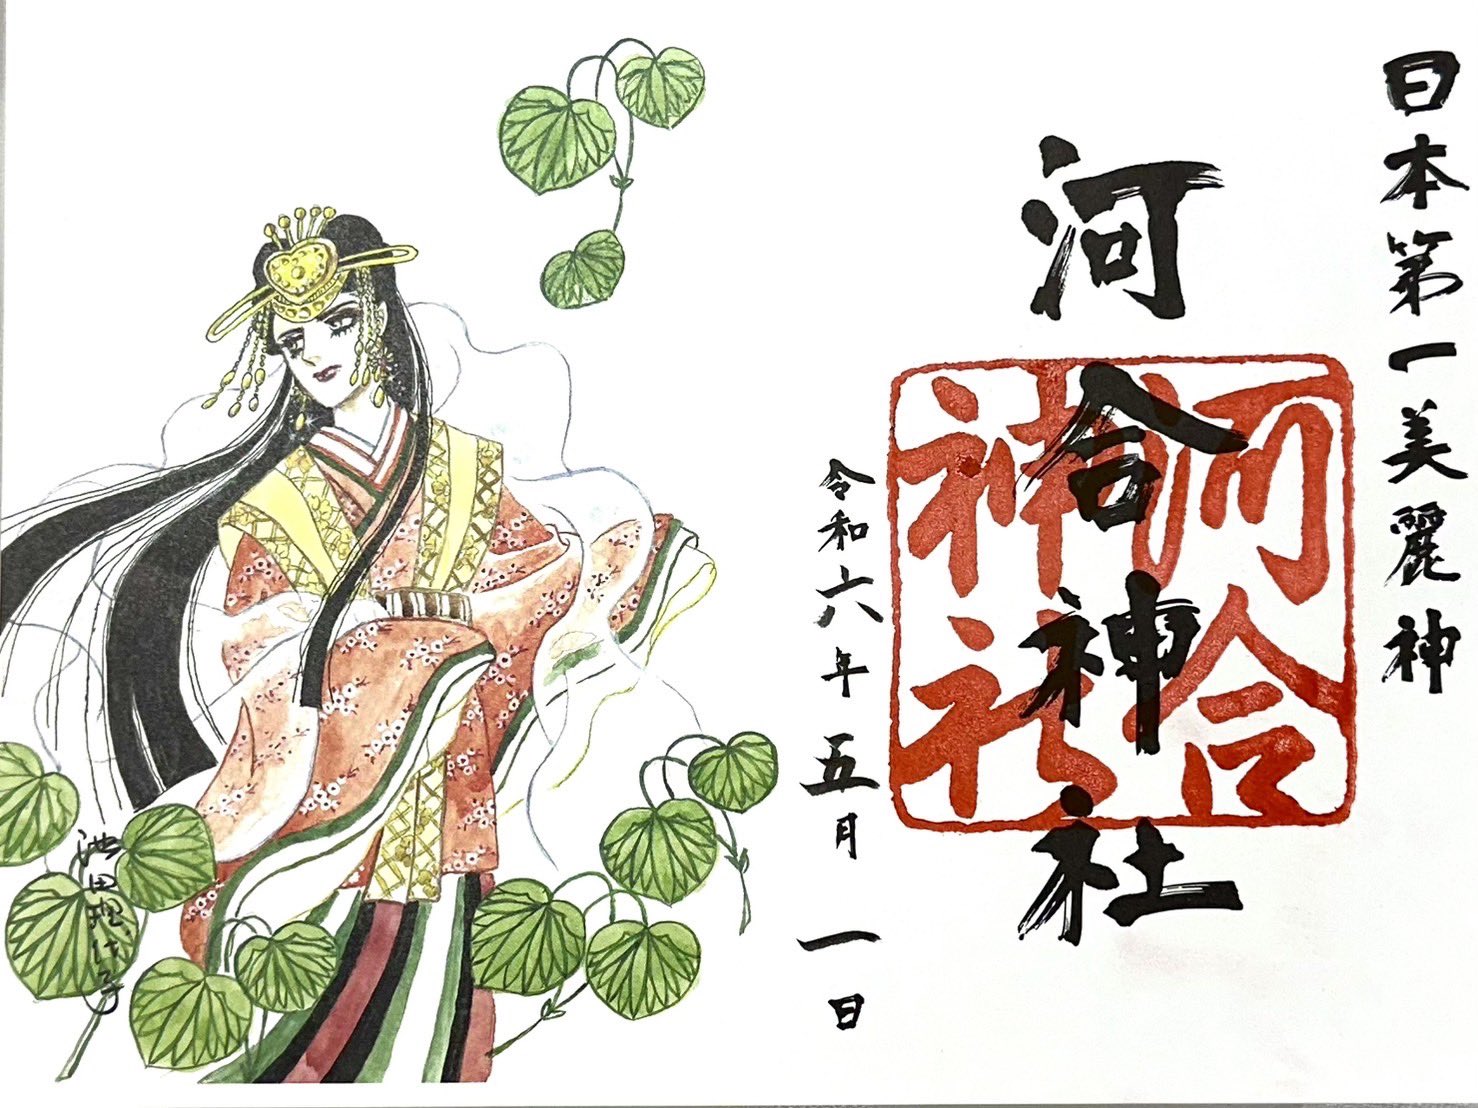 日本第一美麗神
河合神社
河合
神社
令和六年五月一日
池田理代子